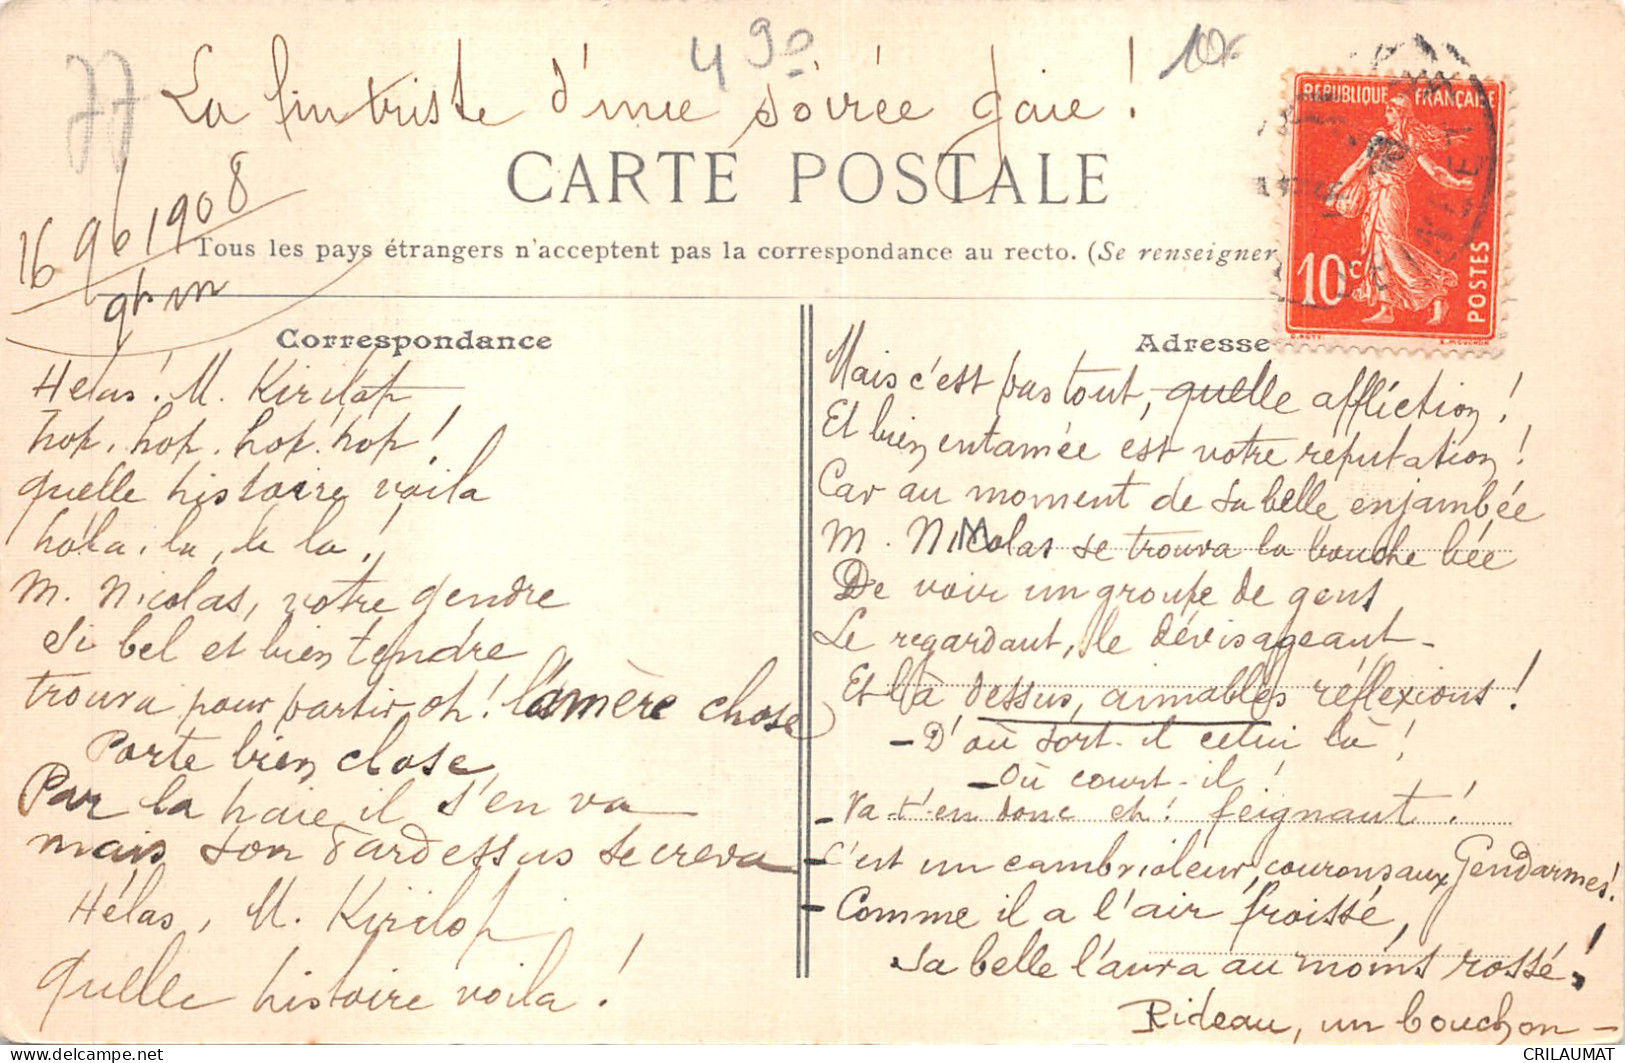 77
490
10f
La fin triste d'une soirée gaie !
CARTE POSTALE
16 9b 1908
9h m
Tous les pays étrangers n'acceptent pas la correspondance au recto. (Se renseigner
REPUBLIQUE FRANÇAISE
10c
POSTES
Correspondance
Hélas ! M. Kirilop
hop, hop, hop, hop !
quelle histoire voila
hola, la, de la !
M. Nicolas, votre gendre
si bel et bien tendre
trouva pour partir oh ! l'amère chose
Porte bien close
Par la haie il s'en va
mais son pardessus se creva
Hélas, M. Kirilop
quelle histoire voila !
Adresse
Mais c'est pas tout, quelle affliction !
Et bien entamée est votre réputation !
Car au moment de sa belle enjambée
M. Nicolas se trouva la bouche bée
De voir un groupe de gens
Le regardant, le dévisageant -
Et là dessus, aimables réflexions !
- D'où sort-il celui là !
- Où court-il !
- Va-t'en donc eh ! feignant !
- C'est un cambrioleur, courons aux Gendarmes !
- Comme il a l'air froissé,
sa belle l'aura au moins rossé !
Rideau, un bouchon -
CRILAUMAT